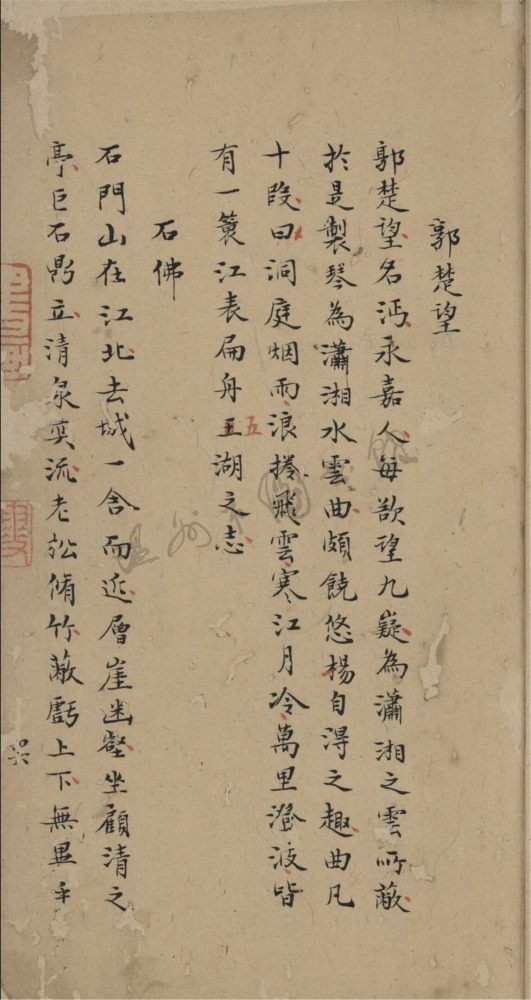 郭楚望
郭楚望名沔永嘉人每欲望九嶷為瀟湘之雲所蔽
於是製琴為瀟湘水雲曲頗饒悠楊自淂之趣曲凡
十段曰洞庭烟雨浪捲飛雲寒江月冷萬里澄波皆
有一簑江表扁舟五湖之志
石佛
石門山在江北去城一舍而近層崖幽壑坐顧清之
亭巨石鼎立清泉奕流老松脩竹蔽虧上下無異乎